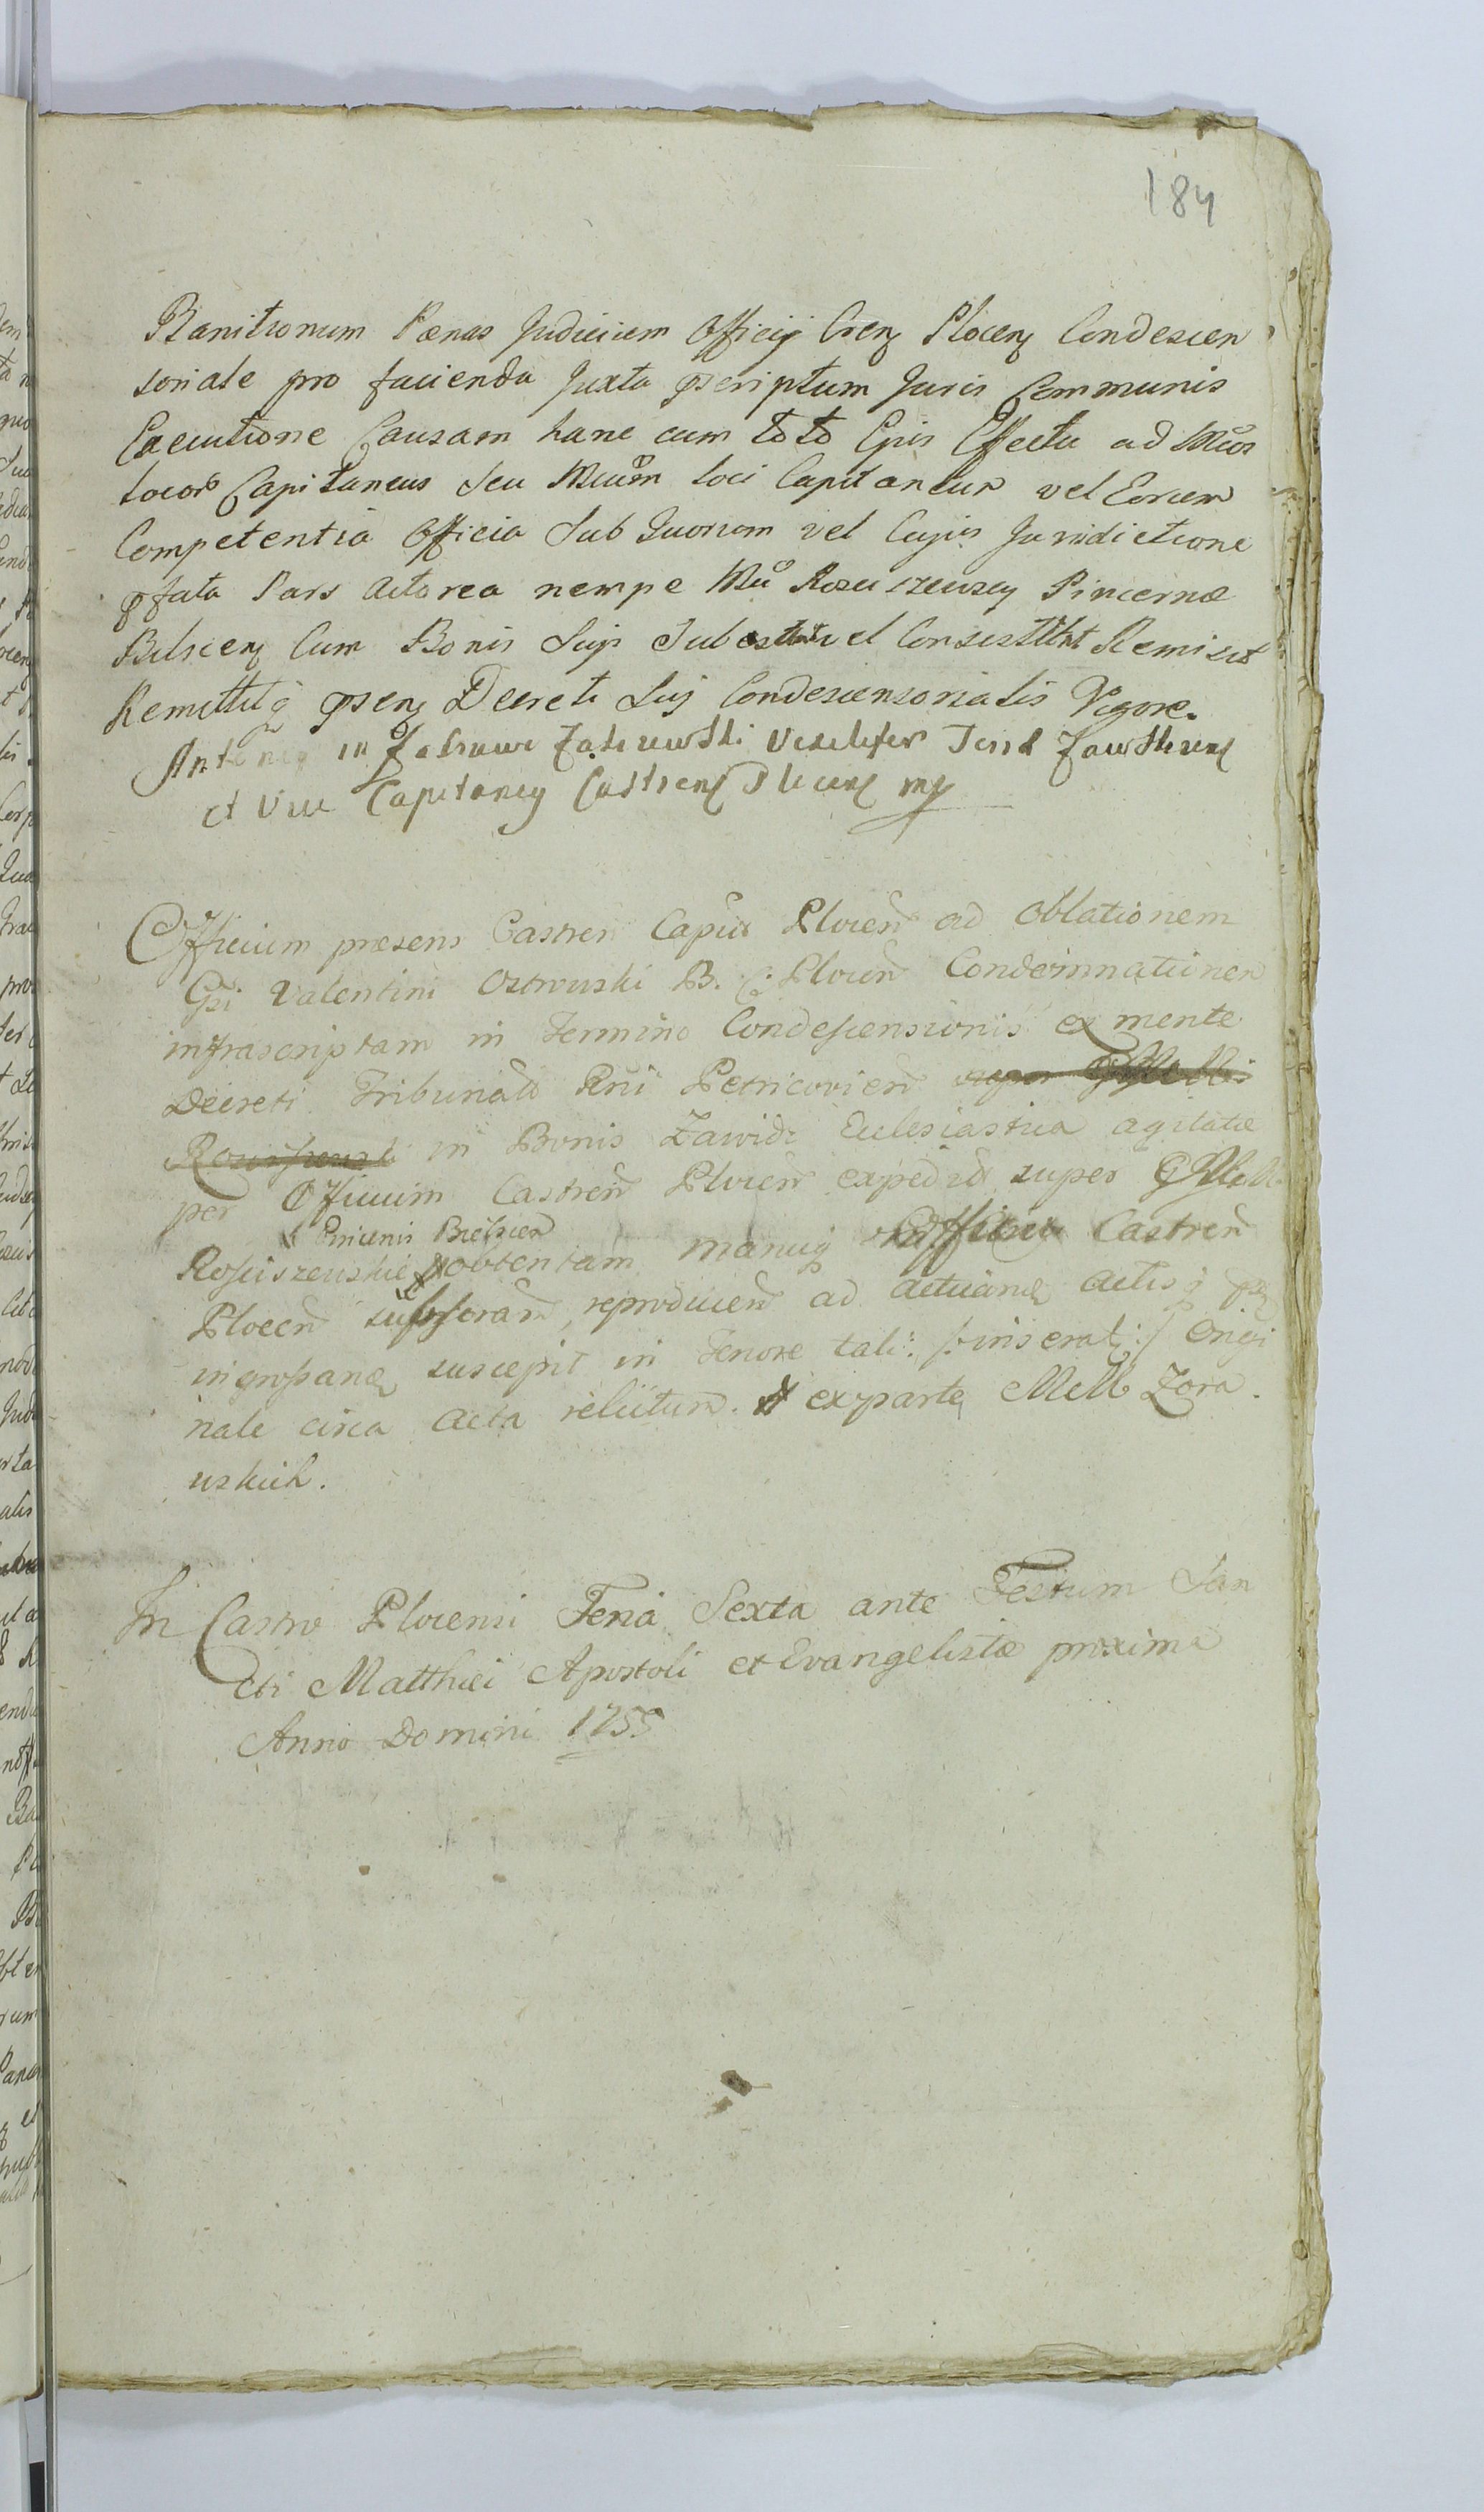 184
Banitionum Pænas Judicium Officij Cren Plocen Condescen
soriale pro facienda Juxta pscriptum Juris Communis
Executione Causam hanc cum toto Ejus Effectu ad Mcos
locor Capitaneus Seu Mcum loci Capitaneum vel Eorum
Competentia Officia Sub Quorum vel Cujus Jurisdictione
pfata Pars Actorea nempe Mci Rosciszewscy Pincernæ
Bilscen Cum Bonis Suis Subest vel Consistit Remisit
Remittitq psen Decreti Sui Condescensorialis Vigore.
Antonius in Zakrzewski Vexilifer Terrae Zawskrzen
et Vice Capitaneus Castren Plocen mp
Officium præsens Castren Capit Plocen ad Oblationem
Gsi Valentini Ostrowski B. C: Plocen Condemnationem
infrascriptam in Termino Condescensionis ex mente
Decreti Tribunalis Rni Petricovien super
in Bonis Zawidz Eclesiastica agitatæ
per Officium Castren Plocen expedit super
Pincernis Bielscen
Rosciszewskie obtentam manuq Castren
Plocen reproducen ad acticand Actisq
ingrossand suscepit in Tenore tali: /:inserat:/ Origi
nale circa Acta relictum. ex parte MM Zora
wskich.
In Castro Plocensi Feria Sexta ante Festum San
cti Matthæi Apostoli et Evangelistæ proxima
Anno Domini 1755